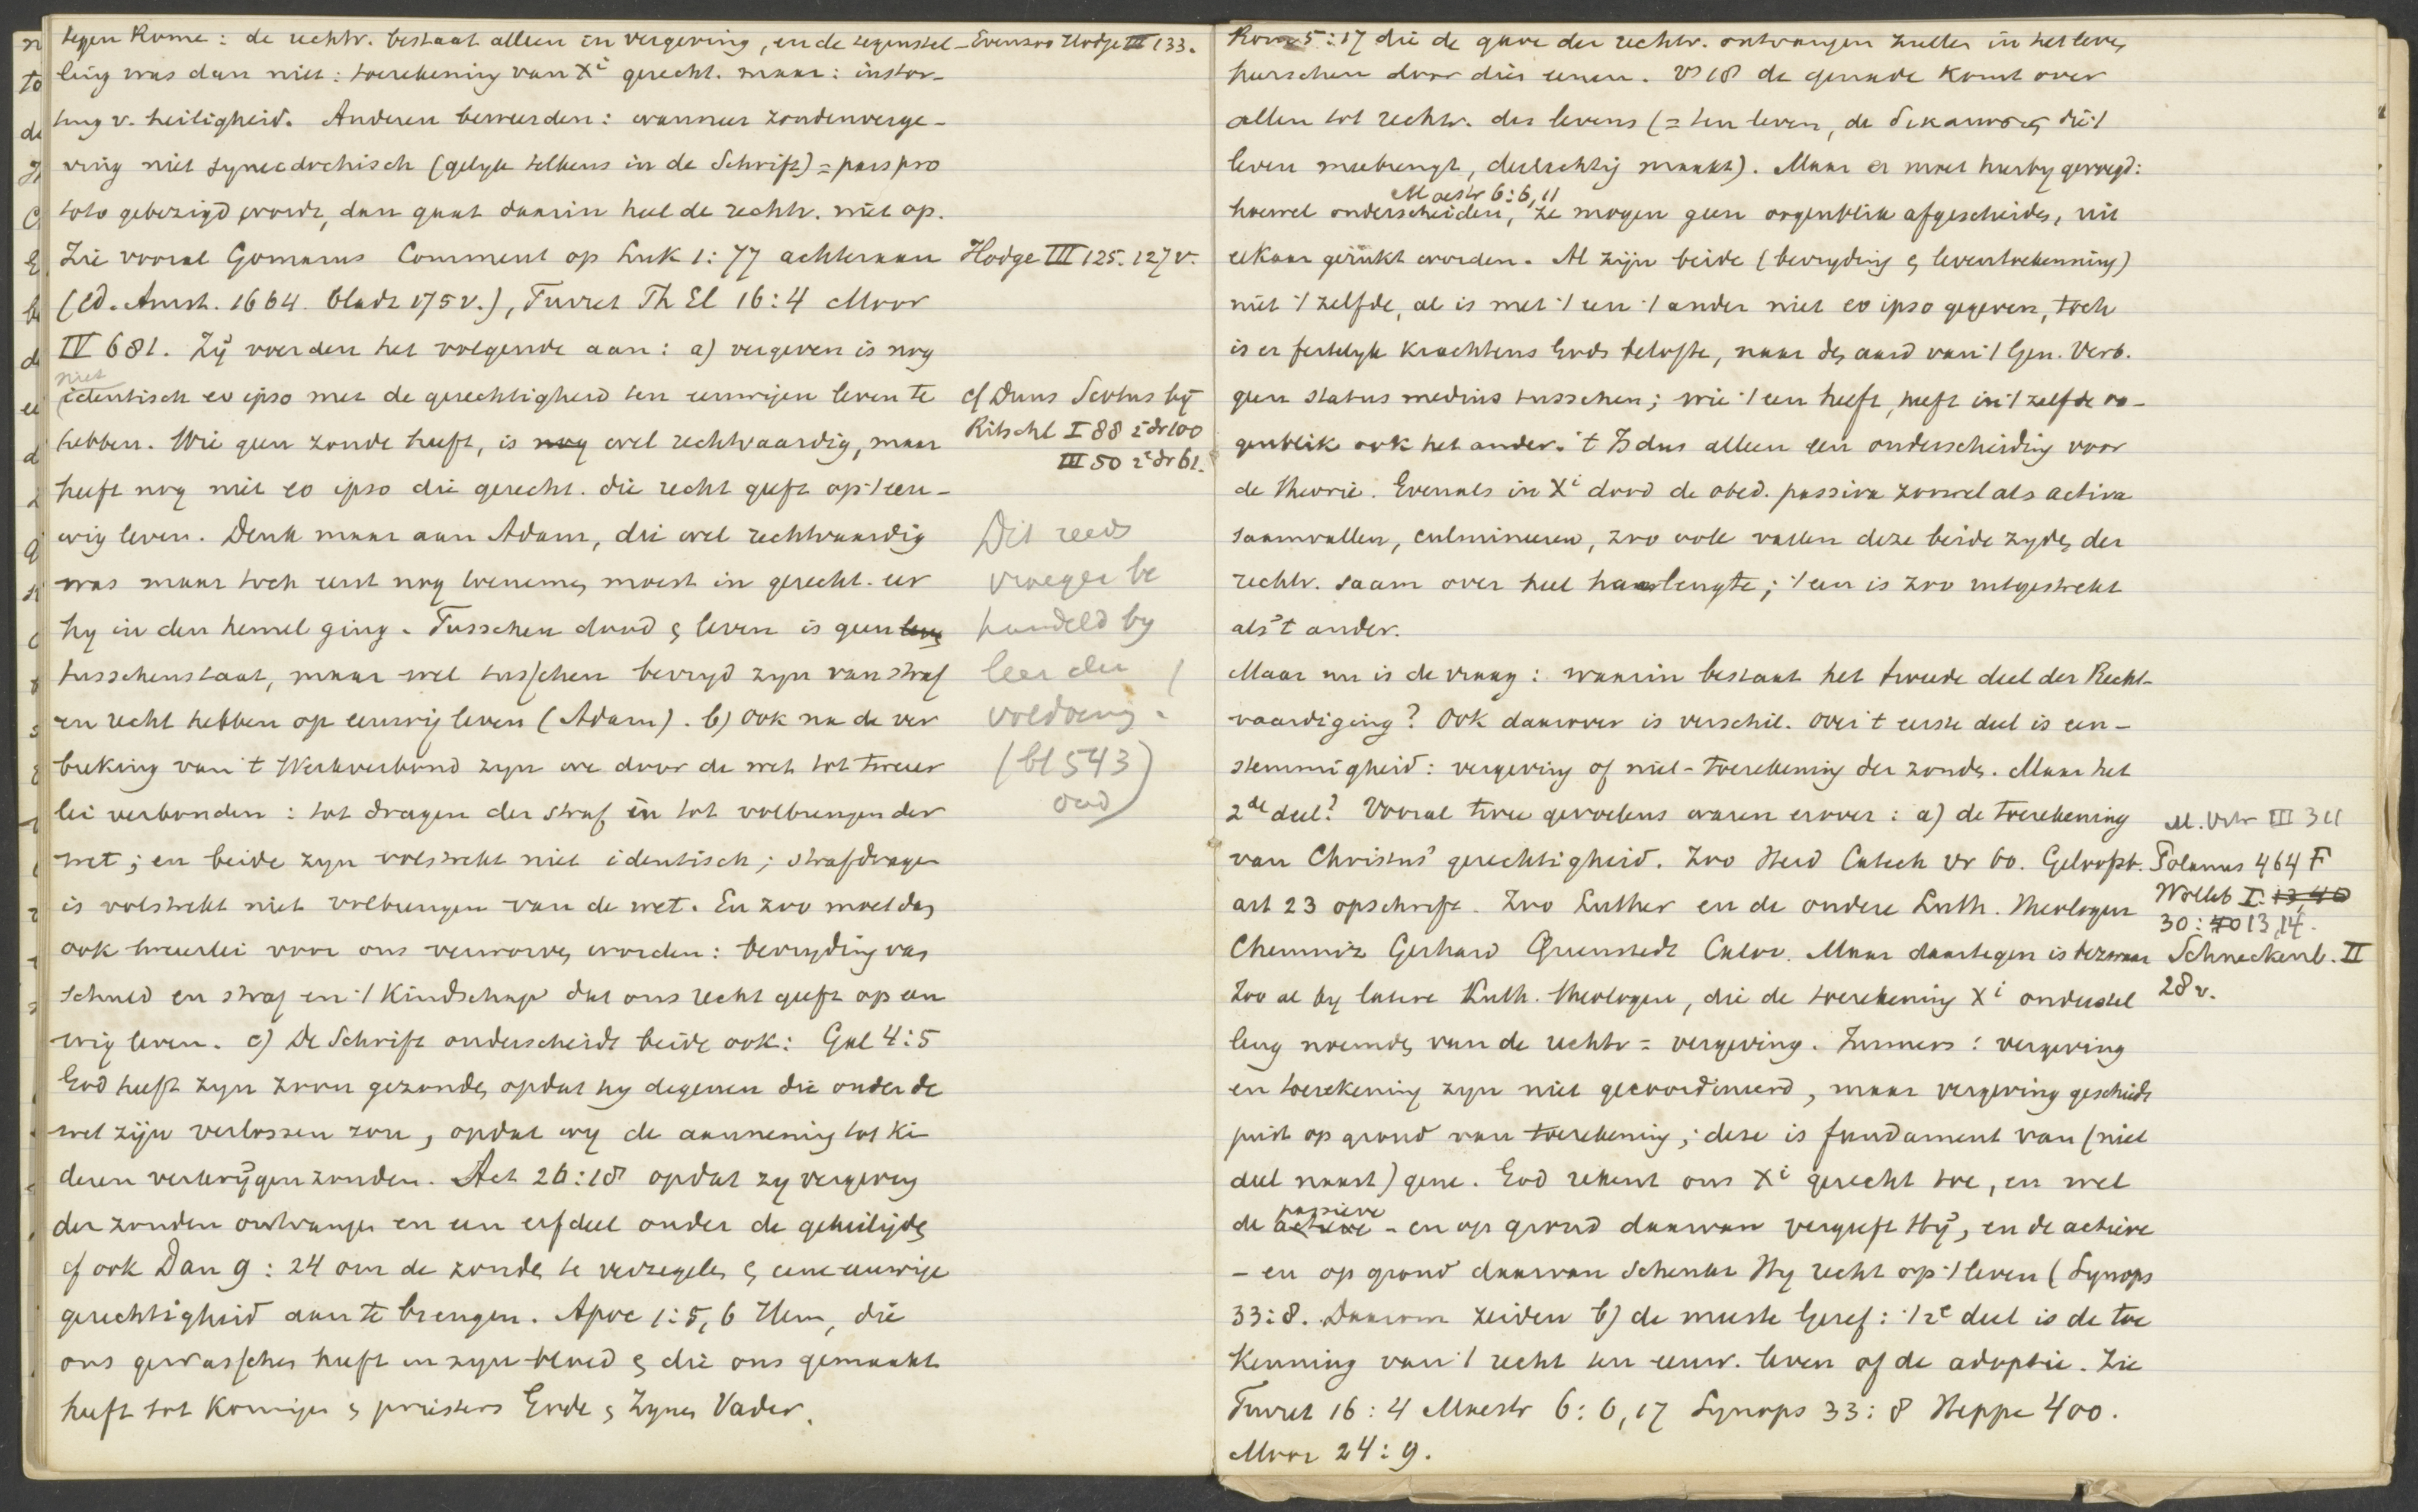 tegen Rome: de rechtv. bestaat alleen in vergeving, en de tegenstel-
ling was dan niet: toerekening van Xi gerecht. maar: instor-
ting v. heiligheid. Anderen beweerden: wanneer zondenverge-
ving niet synecdochisch (gelyk telkens in de Schrift) = pars pro
toto gebezigd wordt, dan gaat daarin heel de rechtv. niet op.
Zie vooral Gomarus Comment op Luk 1:77 achteraan
(ed. Amst. 1664. bladz 175 v.), Turret Th El 16:4 Moor
IV 681. Zij voerden het volgende aan: a) vergeven is nog
niet
identisch eo ipso met de gerechtigheid ten eeuwigen leven te
hebben. Wie geen zonde heeft, is nog wel rechtvaardig, maar
heeft nog niet eo ipso die gerecht. die recht geeft op 't eeu-
wig leven. Denk maar aan Adam, die wel rechtvaardig
was maar toch eerst nog toenemen moest in gerecht. eer
hy in den hemel ging. Tusschen dood & leven is geen leven
tusschenstaat, maar wel tusschen bevryd zyn van straf
en recht hebben op eeuwig leven (Adam). b) Ook na de ver
breking van 't Werkverbond zyn we door de wet tot tweeer
lei verbonden: tot dragen der straf en tot volbrengen der
wet; en beide zyn volstrekt niet identisch; strafdragen
is volstrekt niet volbrengen van de wet. En zoo moet dan
ook tweeerlei voor ons verworven worden: bevryding van
schuld en straf en 't Kindschap dat ons recht geeft op eeu
wig leven. c) De Schrift onderscheidt beide ook: Gal 4:5
God heeft zyn zoon gezonden opdat hy degenen die onder de
wet zijn verlossen zou, opdat wy de aanneming tot ki
deren verkrijgen zouden. Act 26:18 opdat zy vergeving
der zonden ontvangen en een erfdeel onder de geheiligden
cf ook Dan 9:24 om de zonden te verzegelen & eene eeuwige
gerechtigheid aan te brengen. Apoc 1:5,6 Hem, die
ons gewasschen heeft in zyn bloed & die ons gemaakt
heeft tot Koningen & priesters Gode & Zynen Vader.
Evenzoo Hodge III 133.
Hodge III 125. 127 v.
cf Duns Scotus bij
Ritschl I 88 2e dr 100
III 50 2e dr 61.
Dit reeds
vroeger be
handeld by
leer der
voldoening.
(bl 543)
oud
Rom 5:17 die de gave der rechtv. ontvangen zullen in het leven
heerschen door dien eenen. vs 18 de genade komt over
allen tot rechtv. des levens (= ten leven, de δικαιωσις die 't
leven meebrengt, deelachtig maakt). Maar er moet hierby gevoegd:
Maestr 6:6,11
hoewel onderscheiden, ze mogen geen oogenblik afgescheiden, uit
elkaar gerukt worden. Al zijn beide (bevryding & leventoekenning)
niet 't zelfde, al is met 't een 't ander niet eo ipso gegeven, toch
is er feitelyk krachtens Gods belofte, naar den aard van 't Gen. Verb.
geen status medius tusschen; wie 't een heeft, heeft in 't zelfde oo-
genblik ook het ander. 't Is dus alleen een onderscheiding voor
de theorie. Evenals in Xi dood de obed. passiva zoowel als activa
saamvallen, culmineeren, zoo ook vallen deze beide zyden der
rechtv. saam over heel haar lengte; 't een is zoo uitgestrekt
als 't ander.
Maar nu is de vraag: waarin bestaat het tweede deel der Recht-
vaardiging? Ook daarover is verschil. Over 't eerste deel is een-
stemmigheid: vergeving of niet-toerekening der zonde. Maar het
2de deel? Vooral twee gevoelens waren erover: a) de toerekening
van Christus' gerechtigheid. Zoo Heid Catech vr 60. Geloofsb.
art 23 opschrift. Zoo Luther en de oudere Luth. theologen
Chemniz Gerhard Quenstedt Calov. Maar daartegen is bezwaar
Zoo al by latere Luth. theologen, die de toerekening Xi onderstel
ling noemden van de rechtv = vergeving. Immers: vergeving
en toerekening zyn niet gecoordineerd, maar vergeving geschiedt
juist op grond van toerekening; deze is fundament van (niet
deel naast) gene. God rekent ons Xi gerecht toe, en wel
passieve
de actieve - en op grond daarvan vergeeft Hij, en de actieve
- en op grond daarvan schenkt Hy recht op 't leven (Synops
33:8. Daarom zeiden b) de meeste Geref: 't 2e deel is de toe
kenning van 't recht ten eeuw. leven of de adoptie. Zie
Turret 16:4 Maestr 6:6,17 Synops 33:8 Heppe 400.
Moor 24:9.
M. Vitr III 311
Polanus 464 F
Wolleb I. 13,40
30: 40 13,14.
Schneckenb. II
28 v.